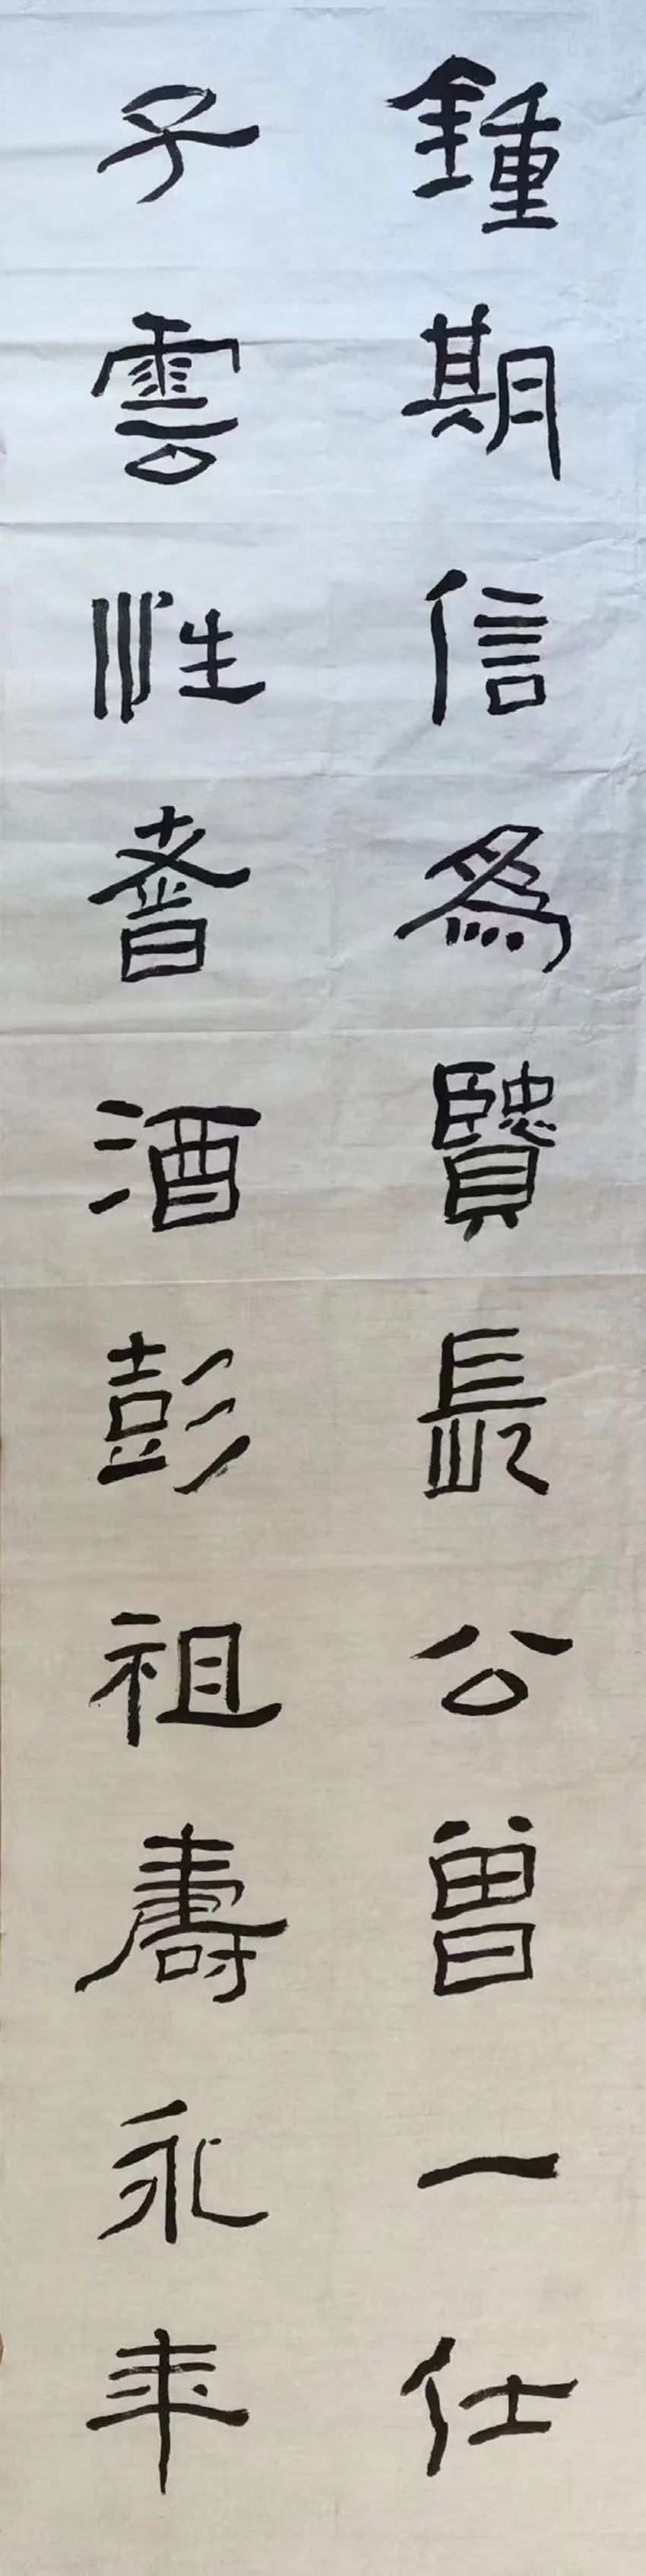 鍾期信爲賢長公曾一仕
子雲性耆酒彭祖壽永年